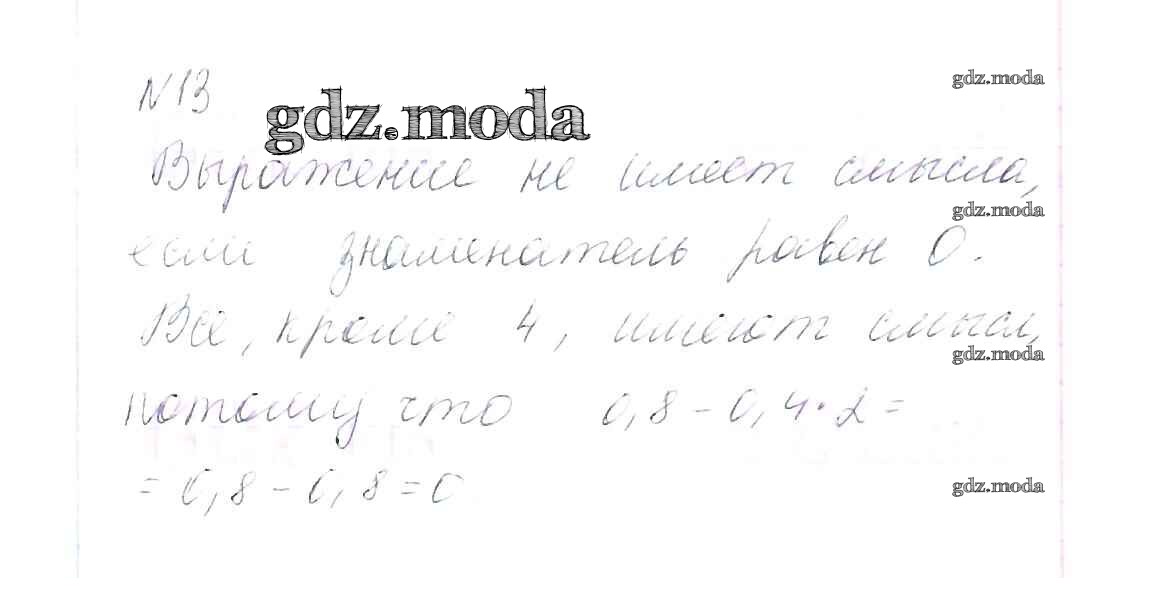 №13
gdz.moda
gdz.moda
Выражение не имеет смысла,
gdz.moda
если знаменатель равен 0.
Все, кроме 4, имеют смысл,
gdz.moda
потому что 0,8 - 0,4 · 2 =
= 0,8 - 0,8 = 0
gdz.moda